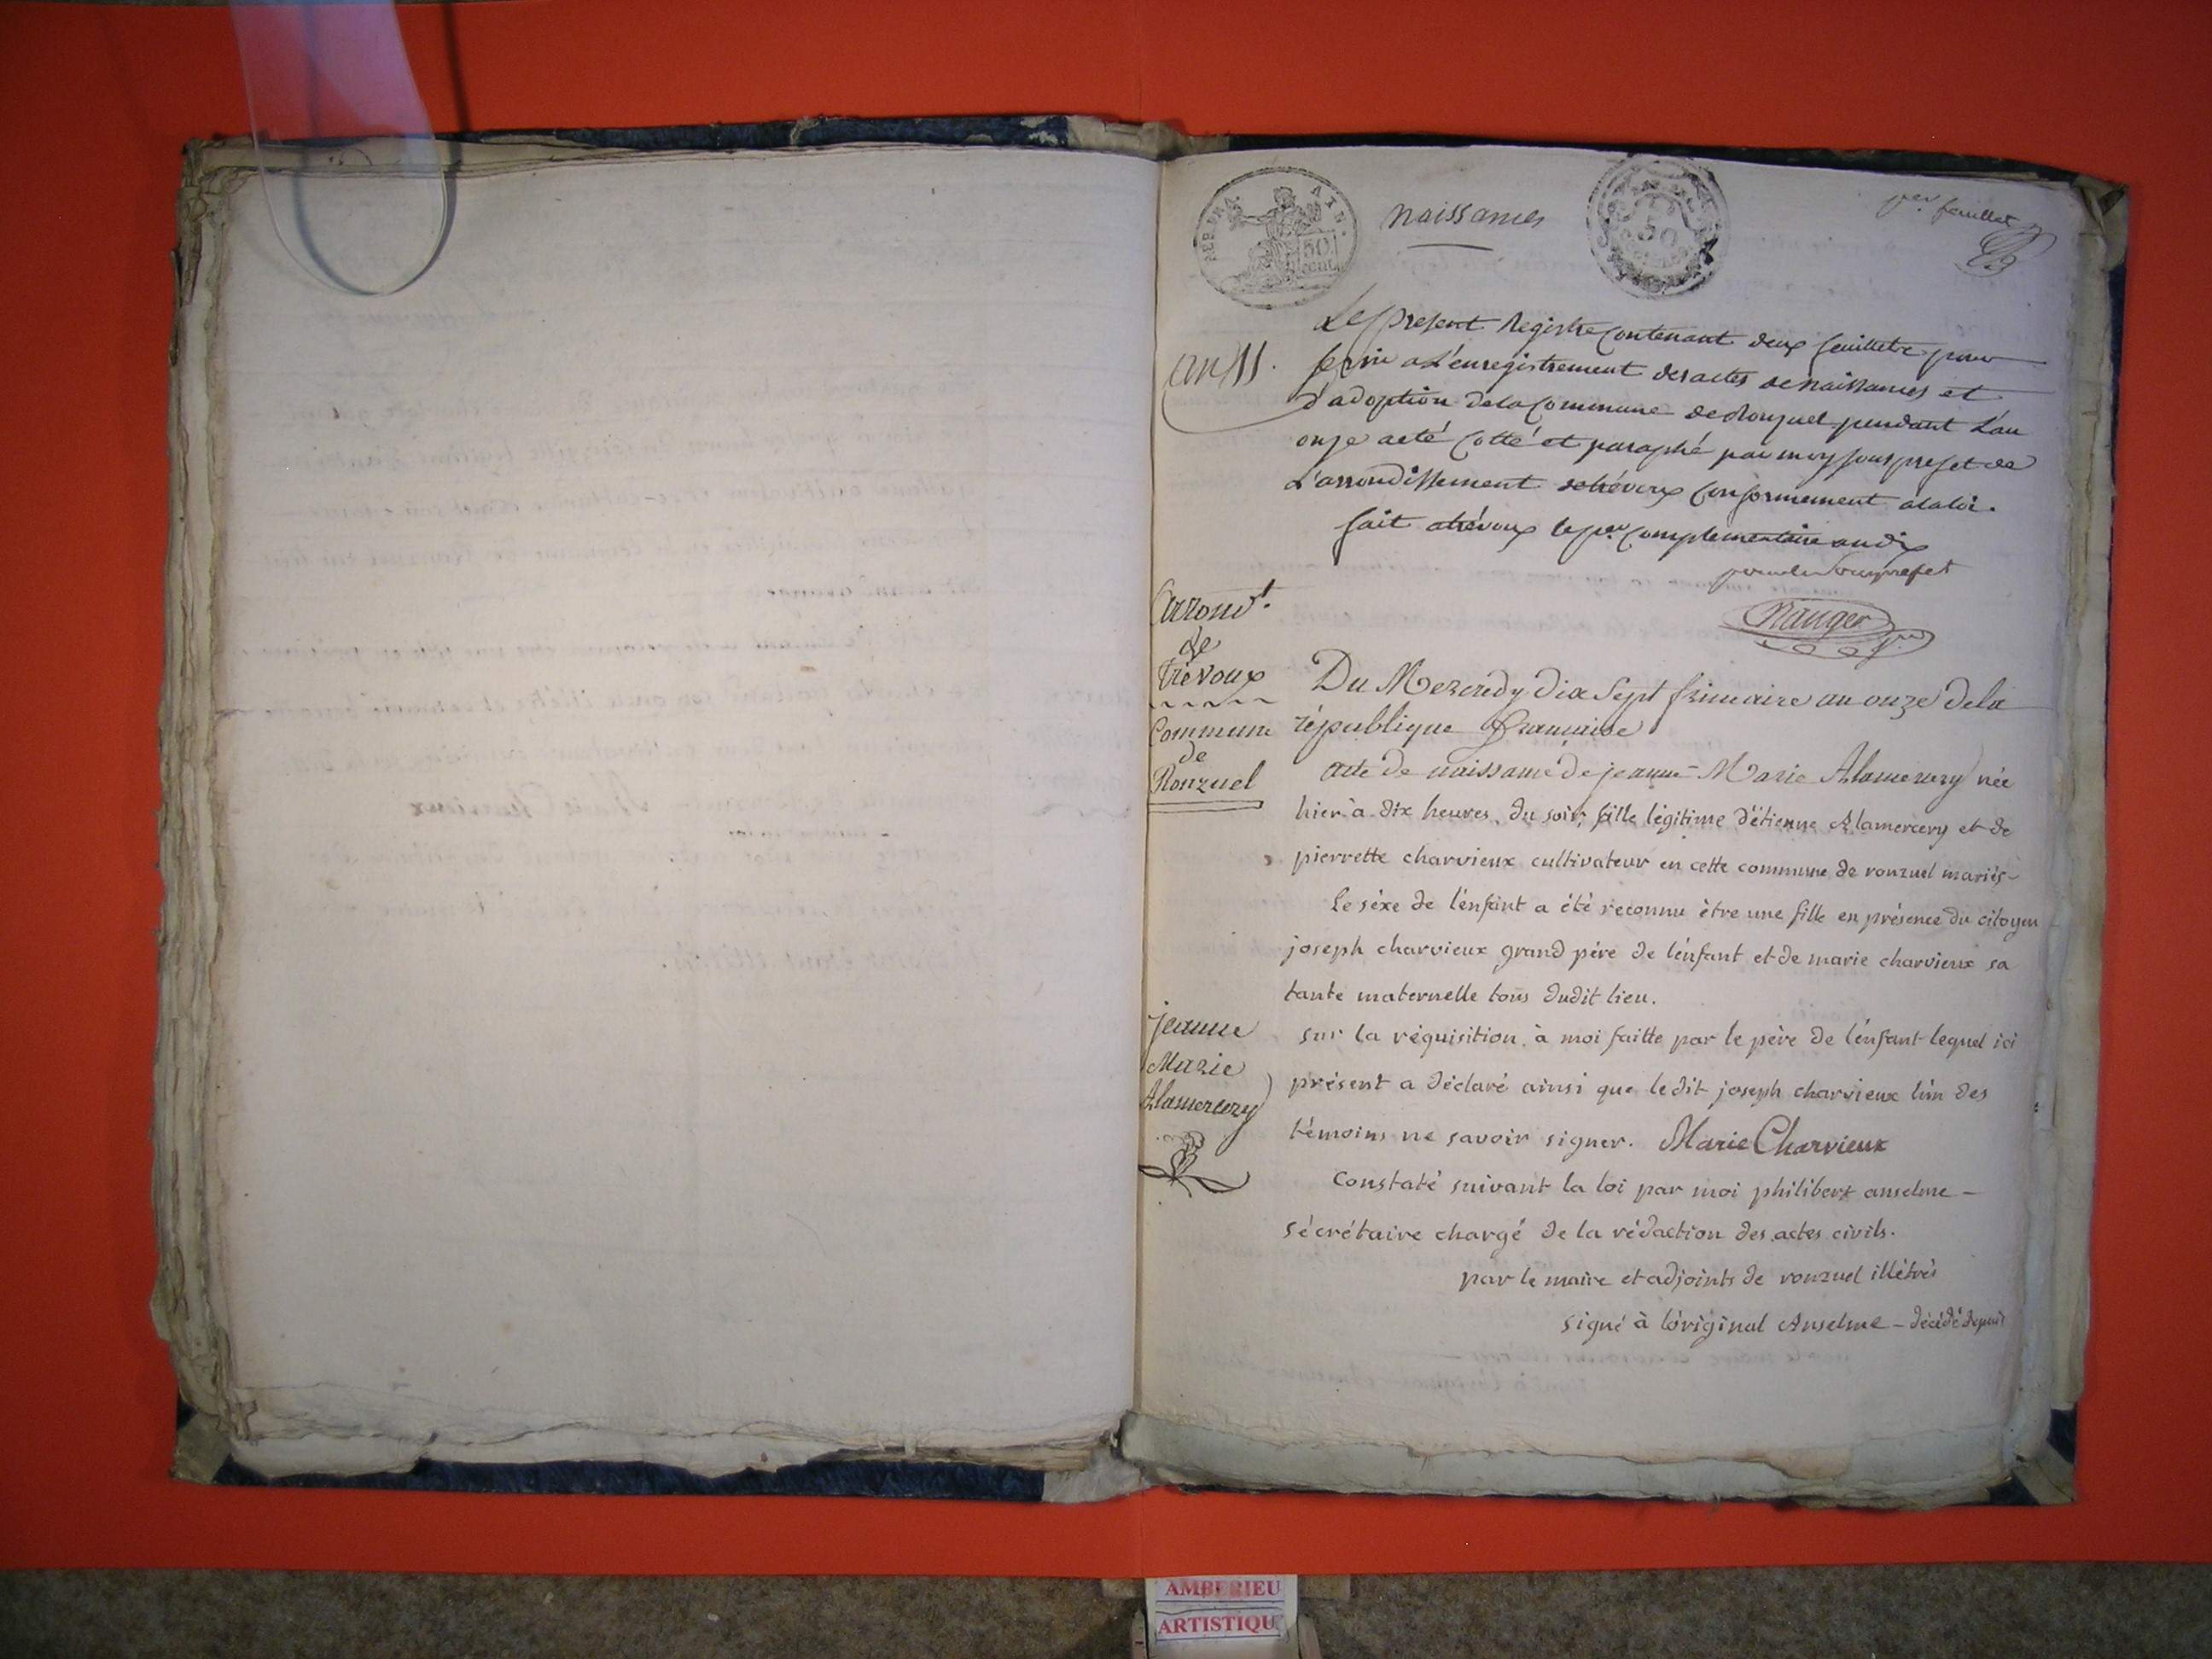 naissances
REP. FRA.
50 cent.
50
1er feuillet
an 11.
Le present Registre Contenant deux feuillets pour
servir a L'enregistrement des actes de naissances et
d'adoption de la Commune de Ronzuel pendant L'an
onze a eté Cotté et paraphé par moy sous prefet de
L'arrondissement de trévoux Conformement a la loi.
fait a trévoux le per Complementaire an dix
pour le Sous prefet
Arrond.t
de
trévoux
Commune
de
Ronzuel
Du Mercredy dix Sept frimaire an onze de la
république française
Acte de naissance de jeanne-Marie Alamercery née
hier à dix heures du soir, fille légitime d'étienne Alamercery et de
pierrette charvieux cultivateur en cette commune de ronzuel mariés-
Le séxe de l'enfant a été reconnu être une fille en présence du citoyen
joseph charvieux grand père de l'enfant et de marie charvieux sa
tante maternelle tous dudit lieu.
jeanne
Marie
Alamercery
sur la réquisition à moi faitte par le père de l'enfant lequel ici
présent a déclaré ainsi que le dit joseph charvieux l'un des
témoins ne savoir signer. Marie Charvieux
Constaté suivant la loi par moi philibert anselme -
sécrétaire chargé de la rédaction des actes civils.
par le maire et adjoints de ronzuel illétrés
signé à l'original Anselme - décédé depuis
AMBERIEU
ARTISTIQU